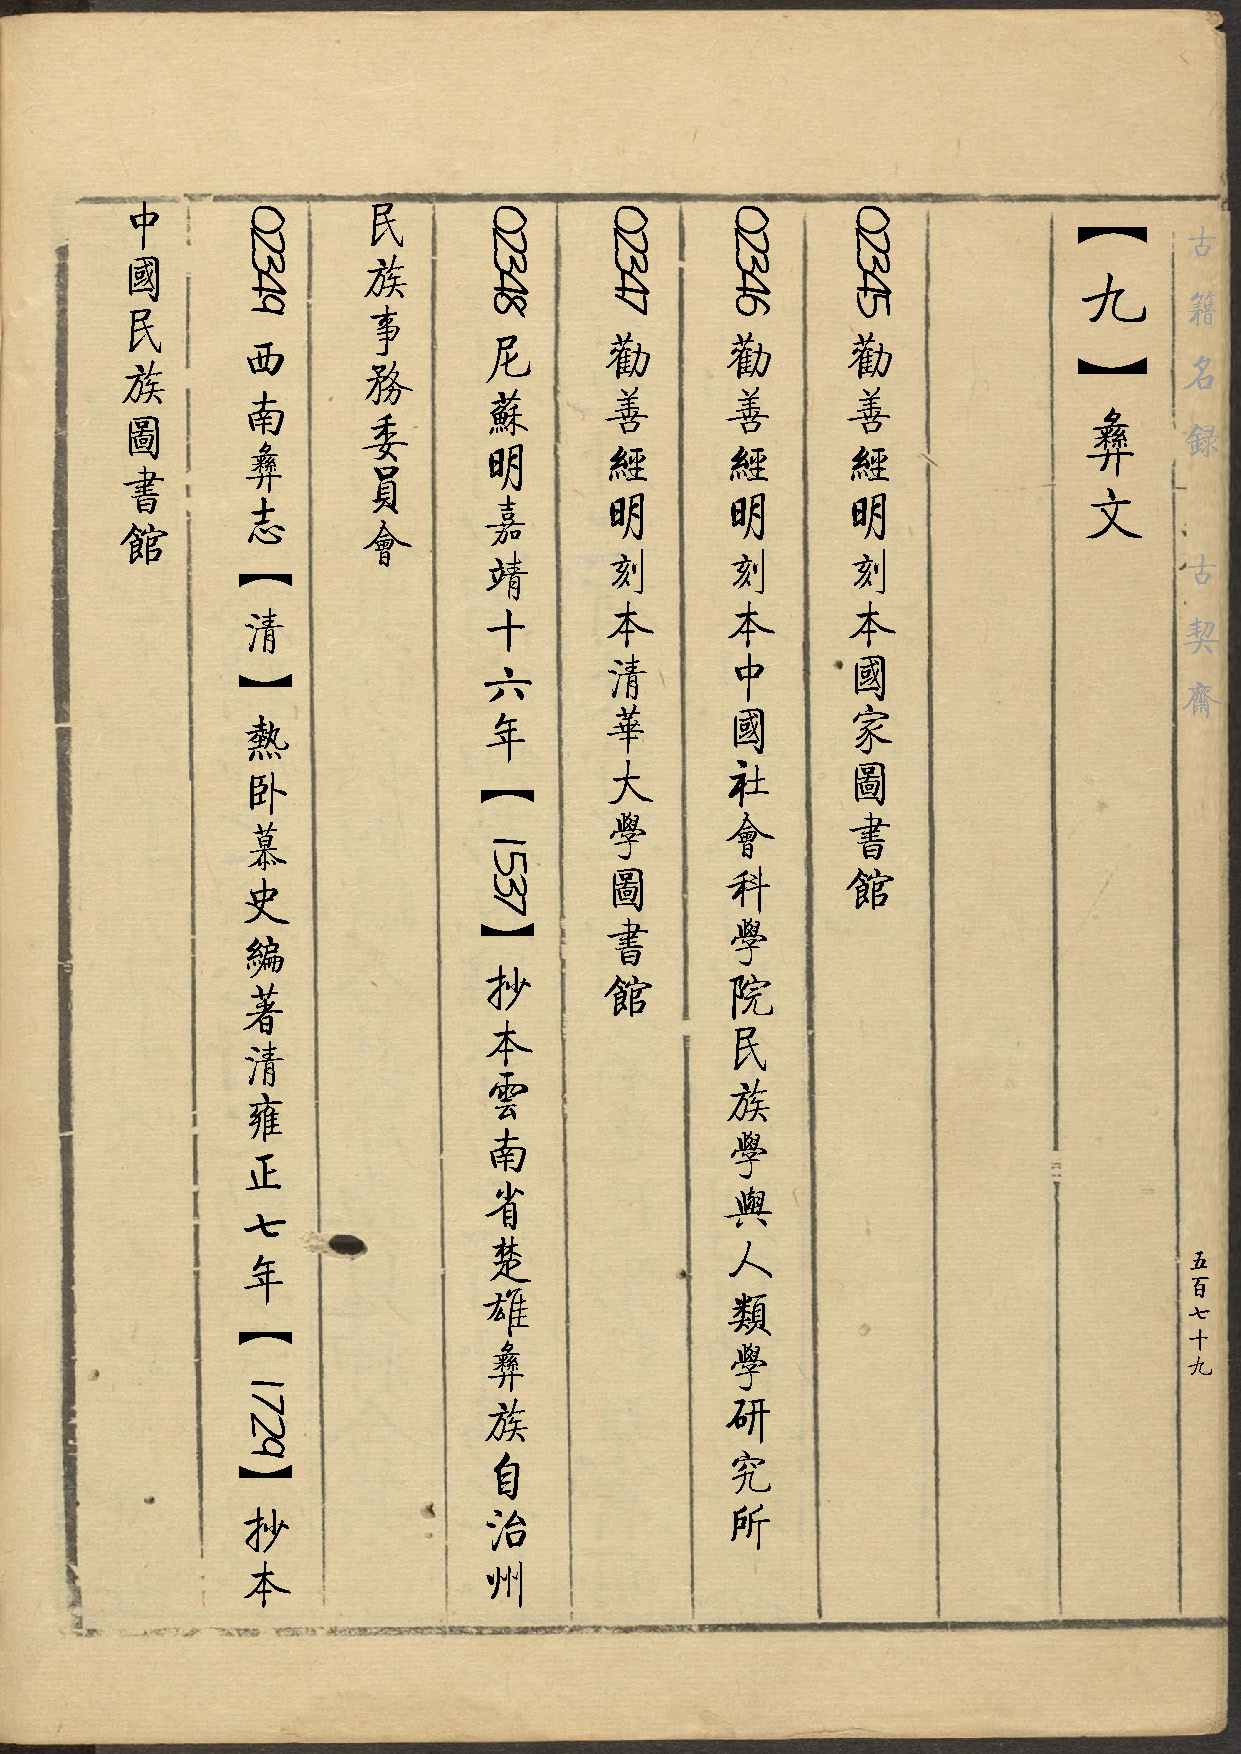 古籍名録 古契齋
五百七十九
【九】彝文
02345勸善經明刻本國家圖書館
02346勸善經明刻本中國社會科學院民族學與人類學研究所
02347勸善經明刻本清華大學圖書館
02348尼蘇明嘉靖十六年【1537】抄本雲南省楚雄彝族自治州
民族事務委員會
02349西南彝志【清】熱卧慕史編著清雍正七年【1729】抄本
中國民族圖書館